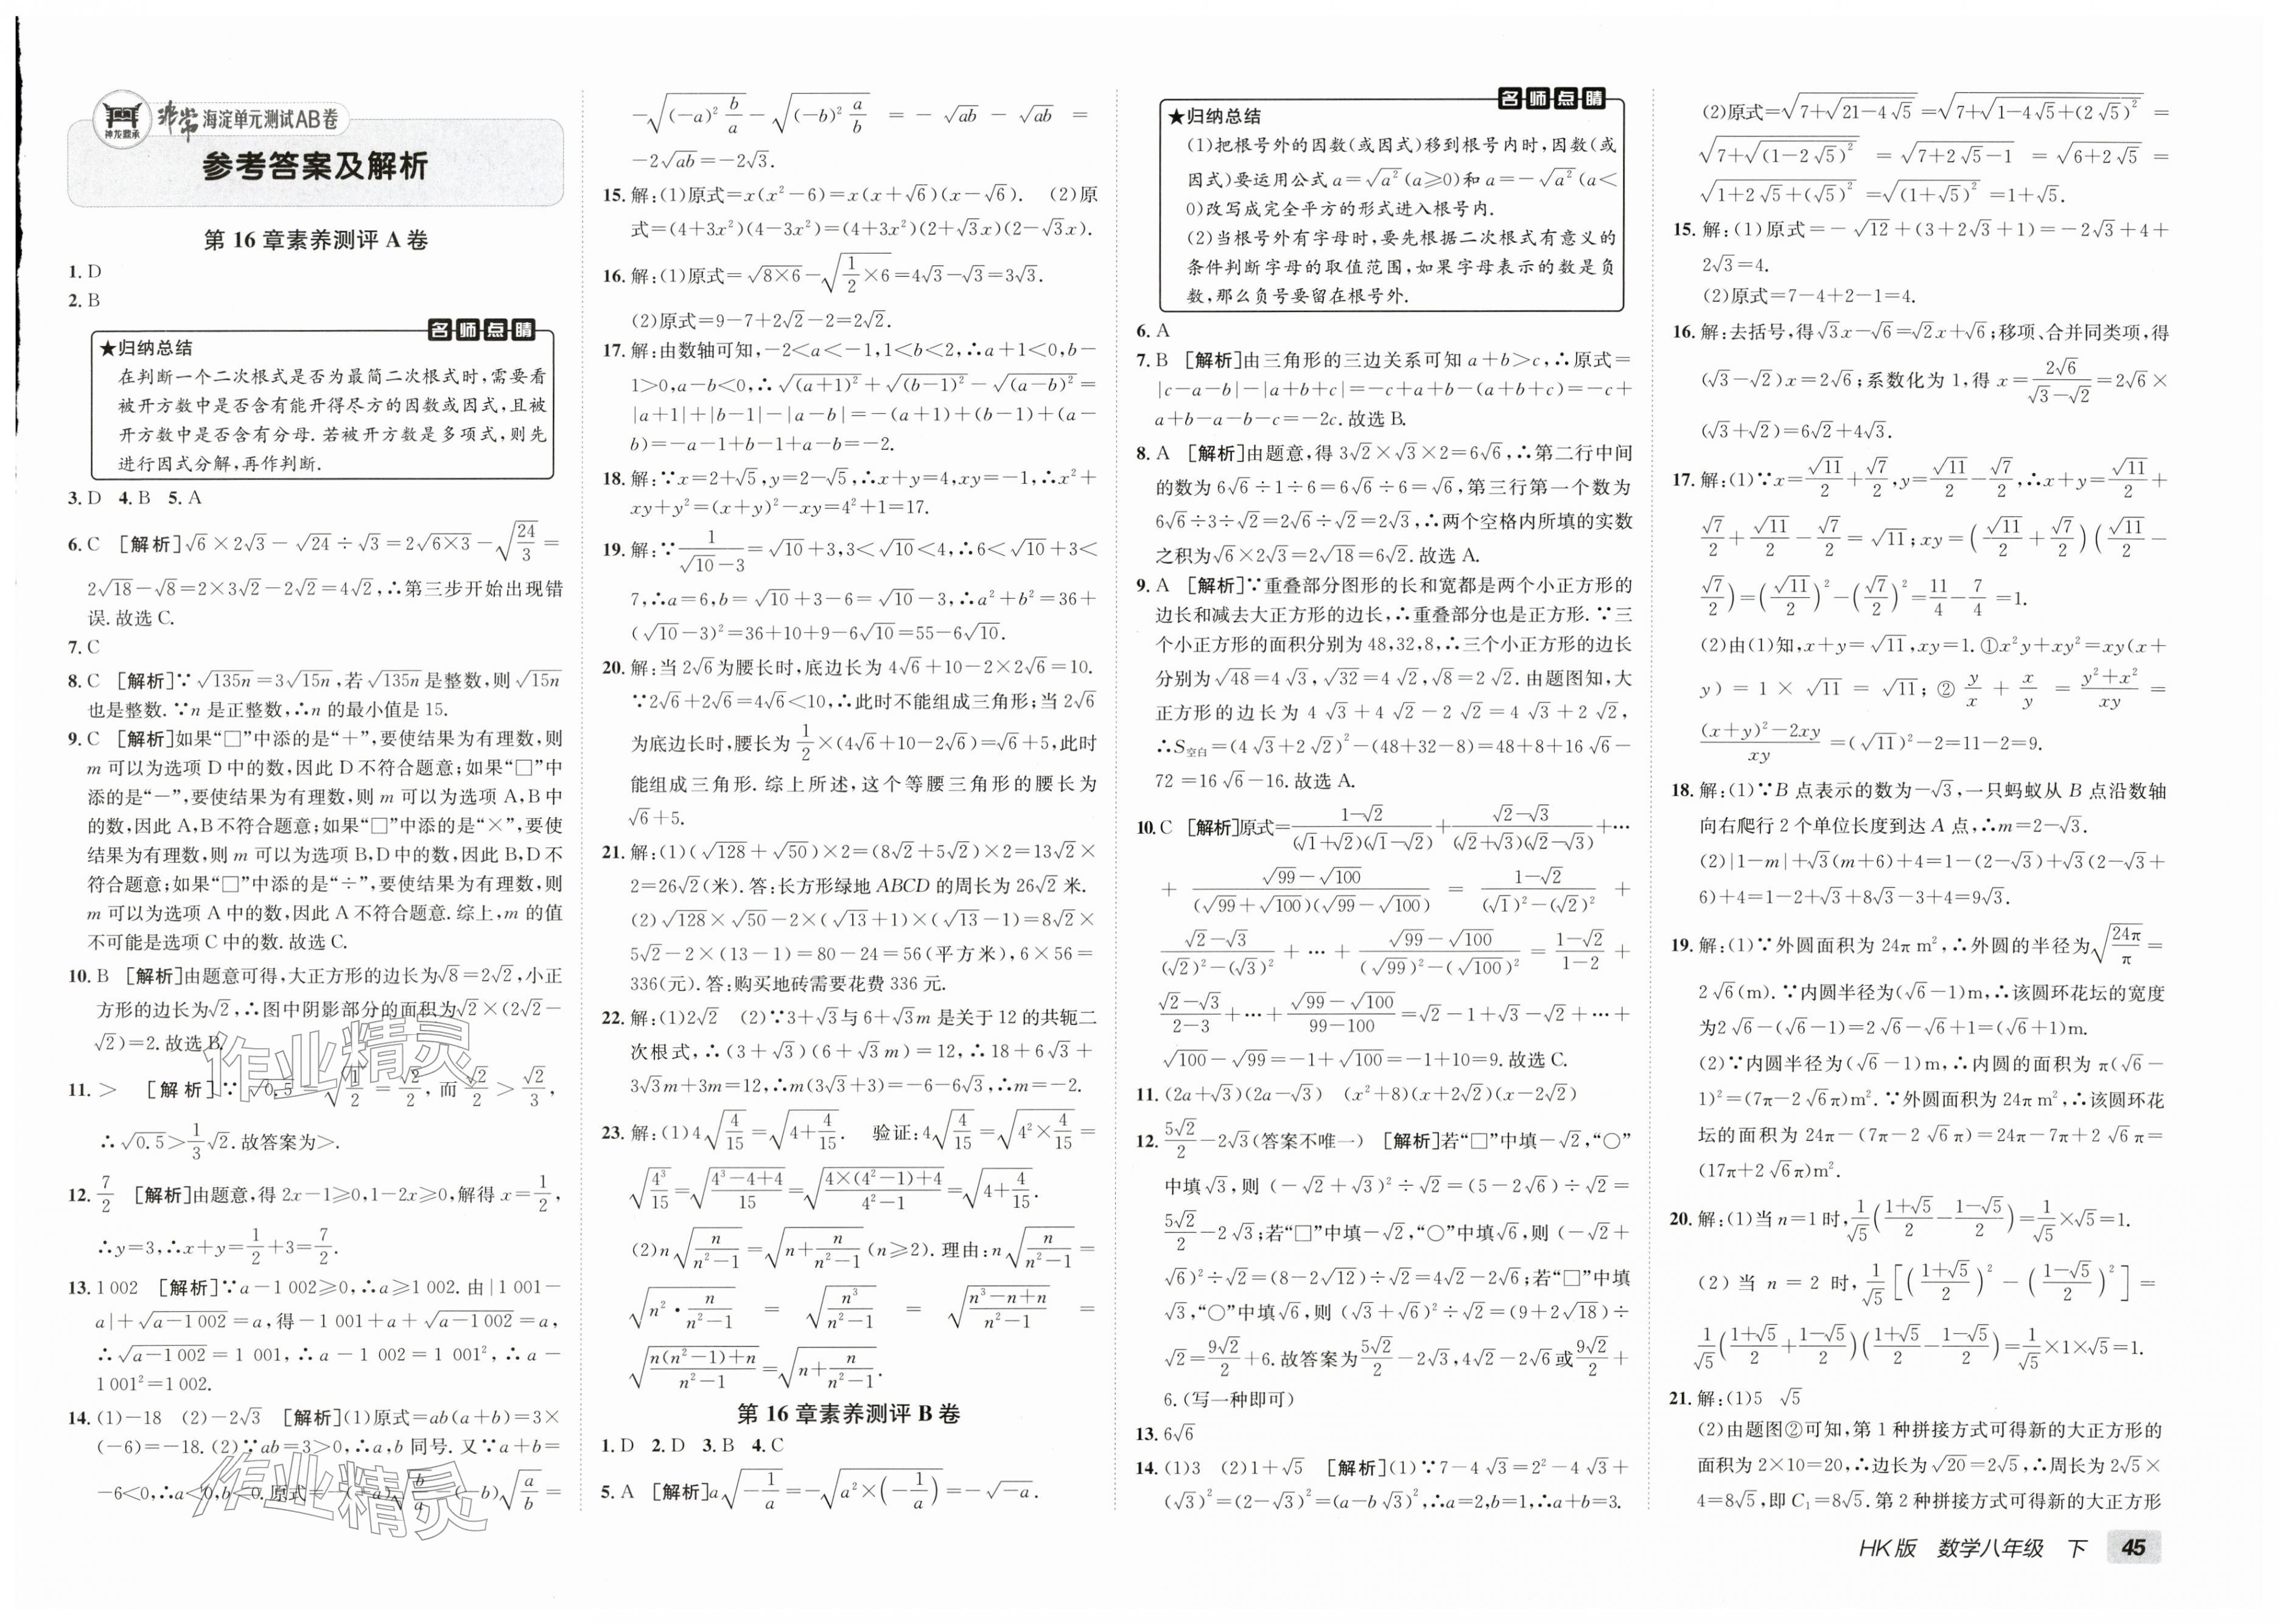 神龙鼎承
非常 海淀单元测试AB卷
参考答案及解析
第 16 章素养测评 A 卷
1. D
2. B
名师点睛
★归纳总结
在判断一个二次根式是否为最简二次根式时,需要看
被开方数中是否含有能开得尽方的因数或因式,且被
开方数中是否含有分母.若被开方数是多项式,则先
进行因式分解,再作判断.
3. D 4. B 5. A
6. C [解析]√6×2√3-√24÷√3=2√(6×3)-√(24/3)=
2√18-√8=2×3√2-2√2=4√2,∴第三步开始出现错
误.故选 C.
7. C
8. C [解析]∵√(135n)=3√(15n),若√(135n)是整数,则√(15n)
也是整数.∵n 是正整数,∴n 的最小值是 15.
9. C [解析]如果“□”中添的是“+”,要使结果为有理数,则
m 可以为选项 D 中的数,因此 D 不符合题意;如果“□”中
添的是“-”,要使结果为有理数,则 m 可以为选项 A,B 中
的数,因此 A,B 不符合题意;如果“□”中添的是“×”,要使
结果为有理数,则 m 可以为选项 B,D 中的数,因此 B,D 不
符合题意;如果“□”中添的是“÷”,要使结果为有理数,则
m 可以为选项 A 中的数,因此 A 不符合题意.综上,m 的值
不可能是选项 C 中的数.故选 C.
10. B [解析]由题意可得,大正方形的边长为√8=2√2,小正
方形的边长为√2,∴图中阴影部分的面积为√2×(2√2-
√2)=2.故选 B.
11. > [解析]∵√0.5=√(1/2)=√2/2,而√2/2>√2/3,
∴√0.5>1/3√2.故答案为>.
12. 7/2 [解析]由题意,得 2x-1≥0,1-2x≥0,解得 x=1/2,
∴y=3,∴x+y=1/2+3=7/2.
13. 1 002 [解析]∵a-1 002≥0,∴a≥1 002.由|1 001-
a|+√(a-1 002)=a,得-1 001+a+√(a-1 002)=a,
∴√(a-1 002)=1 001,∴a-1 002=1 001²,∴a-
1 001²=1 002.
14. (1)-18 (2)-2√3 [解析](1)原式=ab(a+b)=3×
(-6)=-18.(2)∵ab=3>0,∴a,b 同号.又∵a+b=
-6<0,∴a<0,b<0.原式=-(-a)√(b/a)-(-b)√(a/b)=
-√((-a)² b/a)-√((-b)² a/b)=-√(ab)-√(ab)=
-2√(ab)=-2√3.
15. 解:(1)原式=x(x²-6)=x(x+√6)(x-√6). (2)原
式=(4+3x²)(4-3x²)=(4+3x²)(2+√3x)(2-√3x).
16. 解:(1)原式=√(8×6)-√(1/2×6)=4√3-√3=3√3.
(2)原式=9-7+2√2-2=2√2.
17. 解:由数轴可知,-2<a<-1,1<b<2,∴a+1<0,b-
1>0,a-b<0,∴√((a+1)²)+√((b-1)²)-√((a-b)²)=
|a+1|+|b-1|-|a-b|=-(a+1)+(b-1)+(a-
b)=-a-1+b-1+a-b=-2.
18. 解:∵x=2+√5,y=2-√5,∴x+y=4,xy=-1,∴x²+
xy+y²=(x+y)²-xy=4²+1=17.
19. 解:∵1/(√10-3)=√10+3,3<√10<4,∴6<√10+3<
7,∴a=6,b=√10+3-6=√10-3,∴a²+b²=36+
(√10-3)²=36+10+9-6√10=55-6√10.
20. 解:当 2√6为腰长时,底边长为 4√6+10-2×2√6=10.
∵2√6+2√6=4√6<10,∴此时不能组成三角形;当 2√6
为底边长时,腰长为1/2×(4√6+10-2√6)=√6+5,此时
能组成三角形.综上所述,这个等腰三角形的腰长为
√6+5.
21. 解:(1)(√128+√50)×2=(8√2+5√2)×2=13√2×
2=26√2(米).答:长方形绿地 ABCD 的周长为 26√2 米.
(2)√128×√50-2×(√13+1)×(√13-1)=8√2×
5√2-2×(13-1)=80-24=56(平方米),6×56=
336(元).答:购买地砖需要花费 336 元.
22. 解:(1)2√2 (2)∵3+√3与 6+√3m 是关于 12 的共轭二
次根式,∴(3+√3)(6+√3m)=12,∴18+6√3+
3√3m+3m=12,∴m(3√3+3)=-6-6√3,∴m=-2.
23. 解:(1)4√(4/15)=√(4+4/15). 验证:4√(4/15)=√(4²×4/15)=
√(4³/15)=√((4³-4+4)/15)=√((4×(4²-1)+4)/(4²-1))=√(4+4/15).
(2)n√(n/(n²-1))=√(n+n/(n²-1))(n≥2).理由:n√(n/(n²-1))=
√(n²·n/(n²-1))=√(n³/(n²-1))=√((n³-n+n)/(n²-1))=
√((n(n²-1)+n)/(n²-1))=√(n+n/(n²-1)).
第 16 章素养测评 B 卷
1. D 2. D 3. B 4. C
5. A [解析]a√(-1/a)=-√(a²×(-1/a))=-√(-a).
名师点睛
★归纳总结
(1)把根号外的因数(或因式)移到根号内时,因数(或
因式)要运用公式 a=√(a²)(a≥0)和 a=-√(a²)(a<
0)改写成完全平方的形式进入根号内.
(2)当根号外有字母时,要先根据二次根式有意义的
条件判断字母的取值范围,如果字母表示的数是负
数,那么负号要留在根号外.
6. A
7. B [解析]由三角形的三边关系可知 a+b>c,∴原式=
|c-a-b|-|a+b+c|=-c+a+b-(a+b+c)=-c+
a+b-a-b-c=-2c.故选 B.
8. A [解析]由题意,得 3√2×√3×2=6√6,∴第二行中间
的数为 6√6÷1÷6=6√6÷6=√6,第三行第一个数为
6√6÷3÷√2=2√6÷√2=2√3,∴两个空格内所填的实数
之积为√6×2√3=2√18=6√2.故选 A.
9. A [解析]∵重叠部分图形的长和宽都是两个小正方形的
边长和减去大正方形的边长,∴重叠部分也是正方形.∵三
个小正方形的面积分别为 48,32,8,∴三个小正方形的边长
分别为√48=4√3,√32=4√2,√8=2√2.由题图知,大
正方形的边长为 4√3+4√2-2√2=4√3+2√2,
∴S空白=(4√3+2√2)²-(48+32-8)=48+8+16√6-
72=16√6-16.故选 A.
10. C [解析]原式=(1-√2)/((√1+√2)(√1-√2))+(√2-√3)/((√2+√3)(√2-√3))+…
+(√99-√100)/((√99+√100)(√99-√100))=(1-√2)/((√1)²-(√2)²)+
(√2-√3)/((√2)²-(√3)²)+…+(√99-√100)/((√99)²-(√100)²)=(1-√2)/(1-2)+
(√2-√3)/(2-3)+…+(√99-√100)/(99-100)=√2-1+√3-√2+…+
√100-√99=-1+√100=-1+10=9.故选 C.
11. (2a+√3)(2a-√3) (x²+8)(x+2√2)(x-2√2)
12. 5√2/2-2√3(答案不唯一) [解析]若“□”中填-√2,“○”
中填√3,则(-√2+√3)²÷√2=(5-2√6)÷√2=
5√2/2-2√3;若“□”中填-√2,“○”中填√6,则(-√2+
√6)²÷√2=(8-2√12)÷√2=4√2-2√6;若“□”中填
√3,“○”中填√6,则(√3+√6)²÷√2=(9+2√18)÷
√2=9√2/2+6.故答案为5√2/2-2√3,4√2-2√6或9√2/2+
6.(写一种即可)
13. 6√6
14. (1)3 (2)1+√5 [解析](1)∵7-4√3=2²-4√3+
(√3)²=(2-√3)²=(a-b√3)²,∴a=2,b=1,∴a+b=3.
(2)原式=√(7+√(21-4√5))=√(7+√(1-4√5+(2√5)²))=
√(7+√((1-2√5)²))=√(7+2√5-1)=√(6+2√5)=
√(1+2√5+(√5)²)=√((1+√5)²)=1+√5.
15. 解:(1)原式=-√12+(3+2√3+1)=-2√3+4+
2√3=4.
(2)原式=7-4+2-1=4.
16. 解:去括号,得√3x-√6=√2x+√6;移项、合并同类项,得
(√3-√2)x=2√6;系数化为 1,得 x=2√6/(√3-√2)=2√6×
(√3+√2)=6√2+4√3.
17. 解:(1)∵x=√11/2+√7/2,y=√11/2-√7/2,∴x+y=√11/2+
√7/2+√11/2-√7/2=√11;xy=(√11/2+√7/2)(√11/2-
√7/2)=(√11/2)²-(√7/2)²=11/4-7/4=1.
(2)由(1)知,x+y=√11,xy=1.①x²y+xy²=xy(x+
y)=1×√11=√11;②y/x+x/y=(y²+x²)/xy=
((x+y)²-2xy)/xy=(√11)²-2=11-2=9.
18. 解:(1)∵B 点表示的数为-√3,一只蚂蚁从 B 点沿数轴
向右爬行 2 个单位长度到达 A 点,∴m=2-√3.
(2)|1-m|+√3(m+6)+4=1-(2-√3)+√3(2-√3+
6)+4=1-2+√3+8√3-3+4=9√3.
19. 解:(1)∵外圆面积为 24π m²,∴外圆的半径为√(24π/π)=
2√6(m).∵内圆半径为(√6-1)m,∴该圆环花坛的宽度
为2√6-(√6-1)=2√6-√6+1=(√6+1)m.
(2)∵内圆半径为(√6-1)m,∴内圆的面积为 π(√6-
1)²=(7π-2√6π)m².∵外圆面积为 24π m²,∴该圆环花
坛的面积为 24π-(7π-2√6π)=24π-7π+2√6π=
(17π+2√6π)m².
20. 解:(1)当 n=1 时,1/√5((1+√5)/2-(1-√5)/2)=1/√5×√5=1.
(2)当 n=2 时,1/√5[((1+√5)/2)²-((1-√5)/2)²]=
1/√5((1+√5)/2+(1-√5)/2)((1+√5)/2-(1-√5)/2)=1/√5×1×√5=1.
21. 解:(1)5 √5
(2)由题图②可知,第 1 种拼接方式可得新的大正方形的
面积为 2×10=20,∴边长为√20=2√5,∴周长为 2√5×
4=8√5,即 C₁=8√5.第 2 种拼接方式可得新的大正方形
作业精灵
作业精灵
HK版 数学八年级 下 45